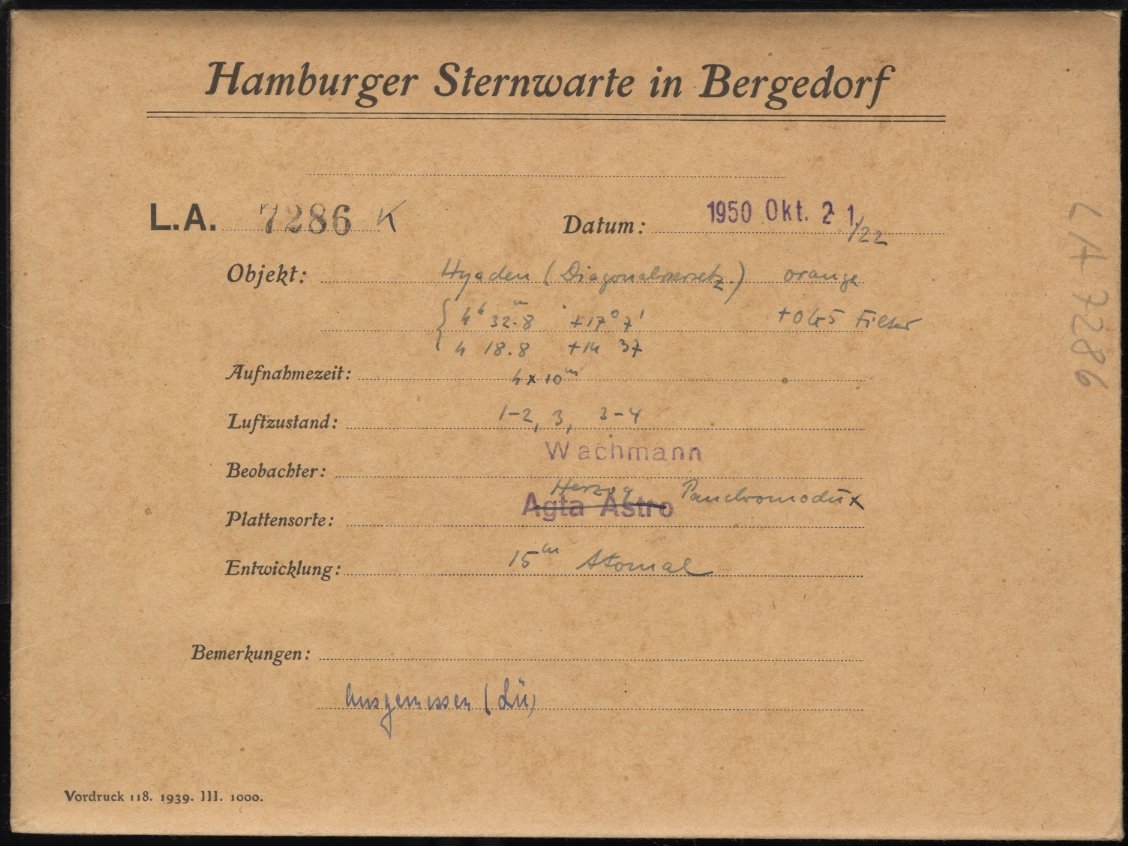 Hamburger Sternwarte in Bergedorf
L.A. 7286 K Datum: 1950 Okt. 21/22
Objekt: Hyaden (Diagonalversetz.) orange
4h 32m.8 +17° 7' +OG5 Filter
4 18.8 +14 37
Aufnahmezeit: 4x10m
Luftzustand: 1-2, 3, 3-4
Beobachter: Wachmann
Herzog Panchromodux
Plattensorte: Agfa Astro
Entwicklung: 15m Atomal
Bemerkungen:
Ausgemessen (Lü)
Vordruck 118. 1939. III. 1000.
LA 7286